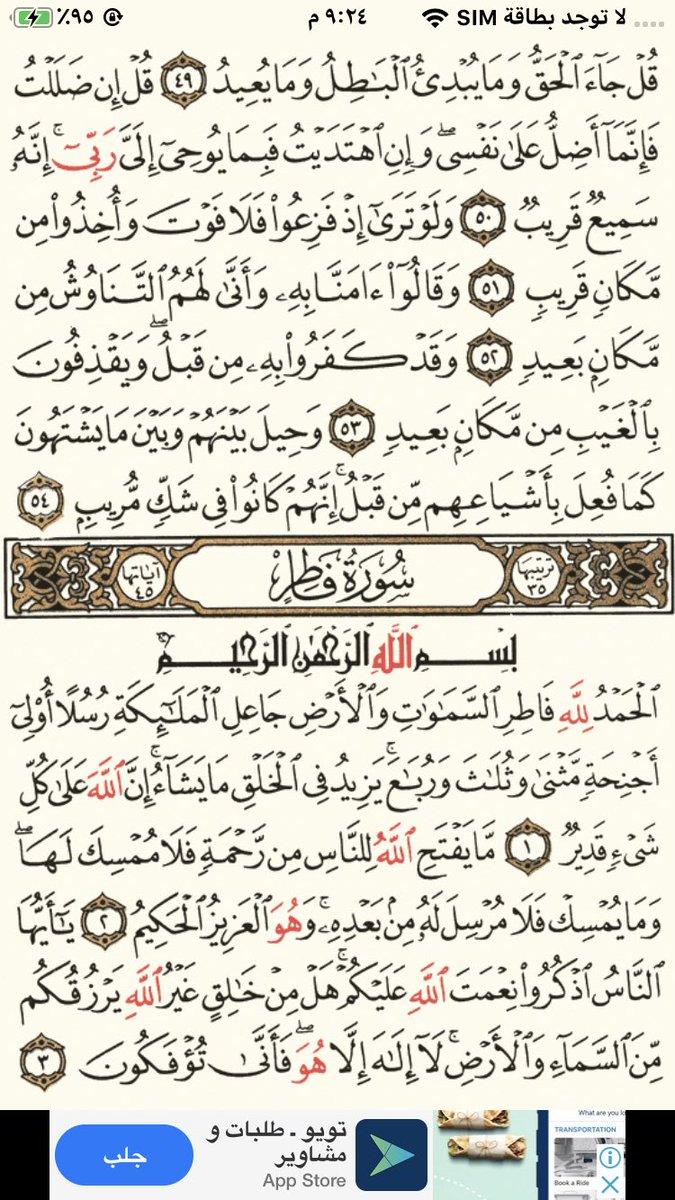 لا توجد بطاقة SIM ٩:٢٤ م ٪٩٥
قُلْ جَآءَ ٱلْحَقُّ وَمَا يُبْدِئُ ٱلْبَٰطِلُ وَمَا يُعِيدُ ٤٩ قُلْ إِن ضَلَلْتُ
فَإِنَّمَآ أَضِلُّ عَلَىٰ نَفْسِى ۖ وَإِنِ ٱهْتَدَيْتُ فَبِمَا يُوحِىٓ إِلَىَّ رَبِّىٓ ۚ إِنَّهُۥ
سَمِيعٌ قَرِيبٌ ٥٠ وَلَوْ تَرَىٰٓ إِذْ فَزِعُوا۟ فَلَا فَوْتَ وَأُخِذُوا۟ مِن
مَّكَانٍ قَرِيبٍ ٥١ وَقَالُوٓا۟ ءَامَنَّا بِهِۦ وَأَنَّىٰ لَهُمُ ٱلتَّنَاوُشُ مِن
مَّكَانٍۭ بَعِيدٍ ٥٢ وَقَدْ كَفَرُوا۟ بِهِۦ مِن قَبْلُ ۖ وَيَقْذِفُونَ
بِٱلْغَيْبِ مِن مَّكَانٍۭ بَعِيدٍ ٥٣ وَحِيلَ بَيْنَهُمْ وَبَيْنَ مَا يَشْتَهُونَ
كَمَا فُعِلَ بِأَشْيَاعِهِم مِّن قَبْلُ ۚ إِنَّهُمْ كَانُوا۟ فِى شَكٍّ مُّرِيبٍۭ ٥٤
ترتيبها ٣٥ سُورَةُ فَاطِرٍ آياتها ٤٥
بِسْمِ ٱللَّهِ ٱلرَّحْمَٰنِ ٱلرَّحِيمِ
ٱلْحَمْدُ لِلَّهِ فَاطِرِ ٱلسَّمَٰوَٰتِ وَٱلْأَرْضِ جَاعِلِ ٱلْمَلَٰٓئِكَةِ رُسُلًا أُو۟لِىٓ
أَجْنِحَةٍ مَّثْنَىٰ وَثُلَٰثَ وَرُبَٰعَ ۚ يَزِيدُ فِى ٱلْخَلْقِ مَا يَشَآءُ ۚ إِنَّ ٱللَّهَ عَلَىٰ كُلِّ
شَىْءٍ قَدِيرٌ ١ مَّا يَفْتَحِ ٱللَّهُ لِلنَّاسِ مِن رَّحْمَةٍ فَلَا مُمْسِكَ لَهَا ۖ
وَمَا يُمْسِكْ فَلَا مُرْسِلَ لَهُۥ مِنۢ بَعْدِهِۦ ۚ وَهُوَ ٱلْعَزِيزُ ٱلْحَكِيمُ ٢ يَٰٓأَيُّهَا
ٱلنَّاسُ ٱذْكُرُوا۟ نِعْمَتَ ٱللَّهِ عَلَيْكُمْ ۚ هَلْ مِنْ خَٰلِقٍ غَيْرُ ٱللَّهِ يَرْزُقُكُم
مِّنَ ٱلسَّمَآءِ وَٱلْأَرْضِ ۚ لَآ إِلَٰهَ إِلَّا هُوَ ۖ فَأَنَّىٰ تُؤْفَكُونَ ٣
تويو - طلبات و
مشاوير
App Store
جلب
What are you lo
TRANSPORTATION
Book a Ride